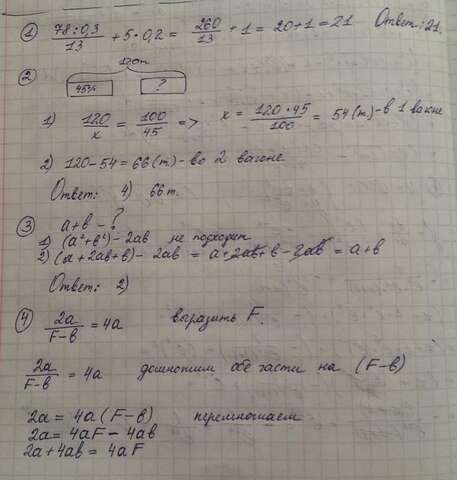 ① 78:0,3/13 + 5·0,2 = 260/13 + 1 = 20+1 = 21 Ответ: 21.
② 120т
45% ?
1) 120/x = 100/45 => x = 120·45/100 = 54(т)-в 1 вагоне
2) 120-54=66(т)-во 2 вагоне
Ответ: 4) 66т.
③ a+в-?
1) (a²+в²)-2aв не подходит
2) (a+2aв+в)-2aв = a+2aв+в-2aв = a+в
Ответ: 2)
④ 2a/F-в = 4a выразить F.
2a/F-в = 4a домножим обе части на (F-в)
2a = 4a(F-в) перемножаем
2a = 4aF - 4aв
2a+4aв = 4aF